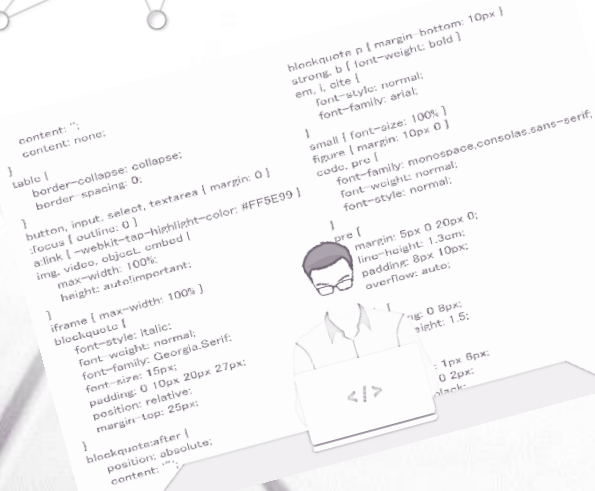 content: '';
content: none;
}
table {
border-collapse: collapse;
border-spacing: 0;
}
button, input, select, textarea { margin: 0 }
:focus { outline: 0 }
a:link { -webkit-tap-highlight-color: #FF5E99 }
img, video, object, embed {
max-width: 100%;
height: auto!important;
}
iframe { max-width: 100% }
blockquote {
font-style: italic;
font-weight: normal;
font-family: Georgia,Serif;
font-size: 15px;
padding: 0 10px 20px 27px;
position: relative;
margin-top: 25px;
}
blockquote:after {
position: absolute;
content: '"';
blockquote p { margin-bottom: 10px }
strong, b { font-weight: bold }
em, i, cite {
font-style: normal;
font-family: arial;
}
small { font-size: 100% }
figure { margin: 10px 0 }
code, pre {
font-family: monospace,consolas,sans-serif;
font-weight: normal;
font-style: normal;
}
pre {
margin: 5px 0 20px 0;
line-height: 1.3em;
padding: 8px 10px;
overflow: auto;
}
{
ng: 0 8px;
eight: 1.5;
: 1px 6px;
0 2px;
black;
</>